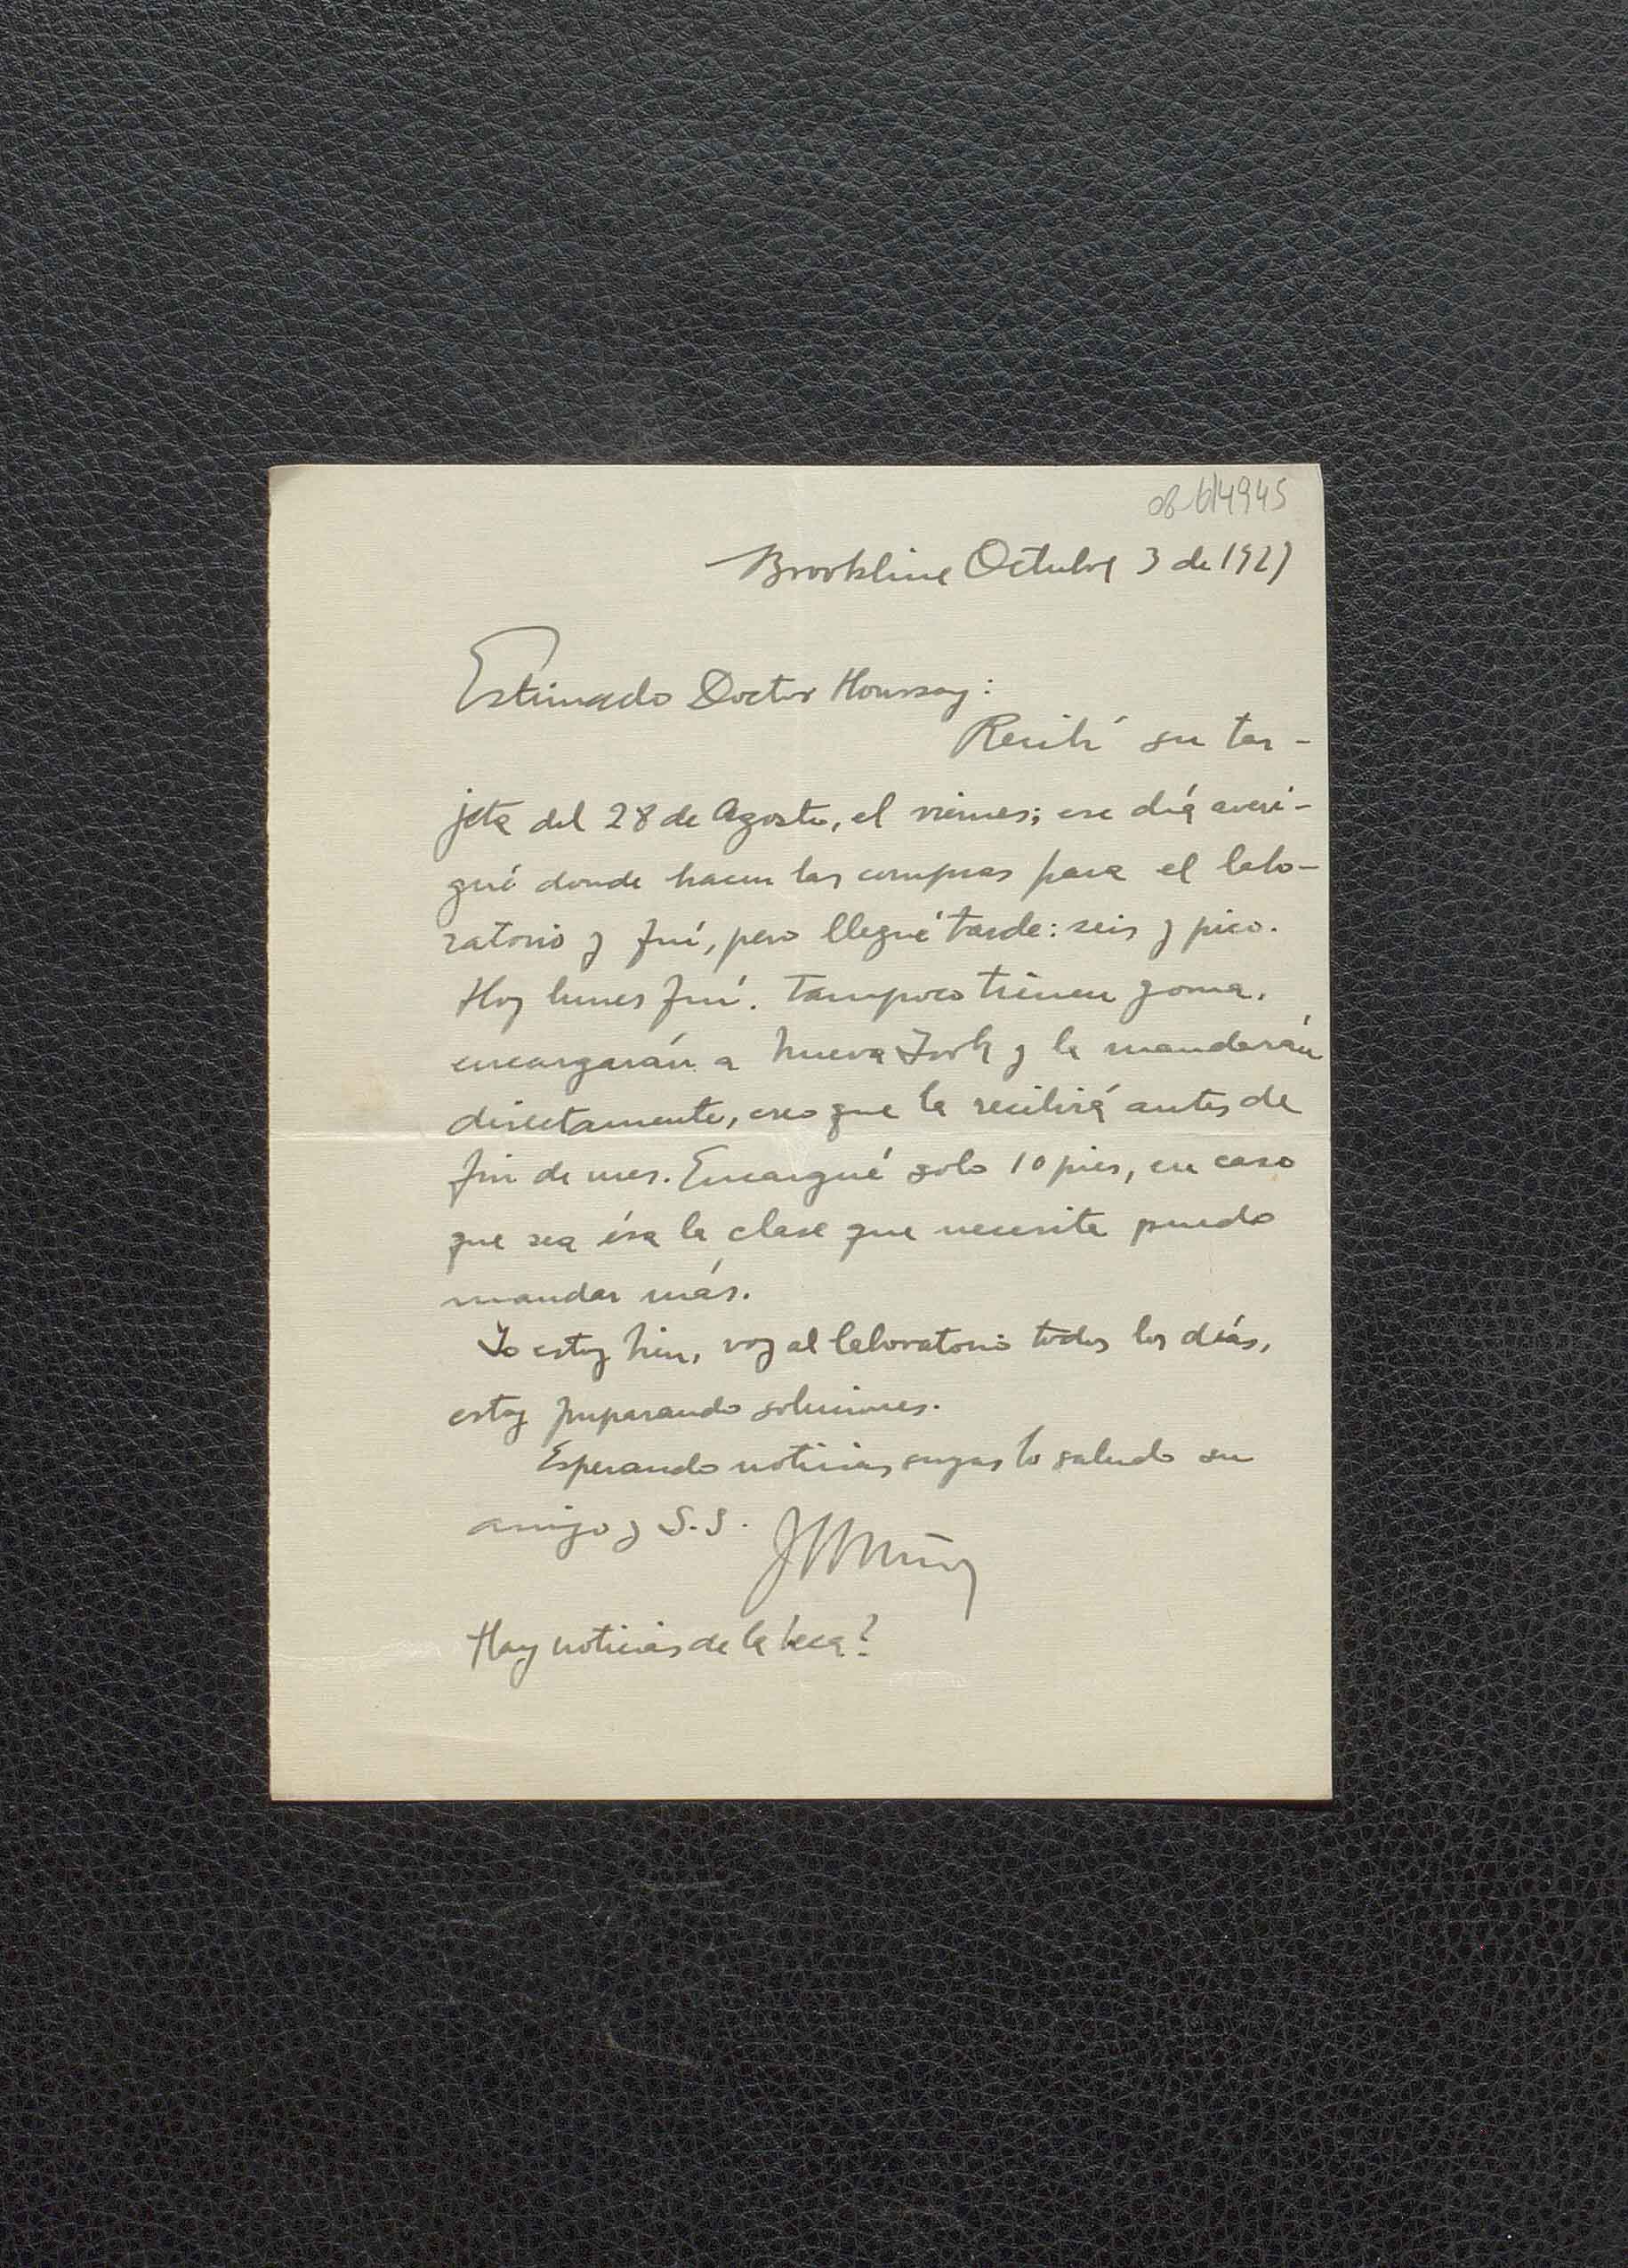 08-6/4945
Brookline Octubre 3 de 1927
Estimado Doctor Houssay:
Recibí su tar-
jeta del 28 de Agosto, el viernes; ese día averi-
gué donde hacen las compras para el labo-
ratorio y fuí, pero llegué tarde: seis y pico.
Hoy lunes fuí. Tampoco tienen goma,
encargarán a Nueva York y la mandarán
directamente, creo que la recibirá antes de
fin de mes. Encargué solo 10 pies, en caso
que sea ésa la clase que necesita puedo
mandar más.
Yo estoy bien, voy al laboratorio todos los días,
estoy preparando soluciones.
Esperando noticias suyas lo saluda su
amigo y S.S. JMMuñoz
Hay noticias de la beca?